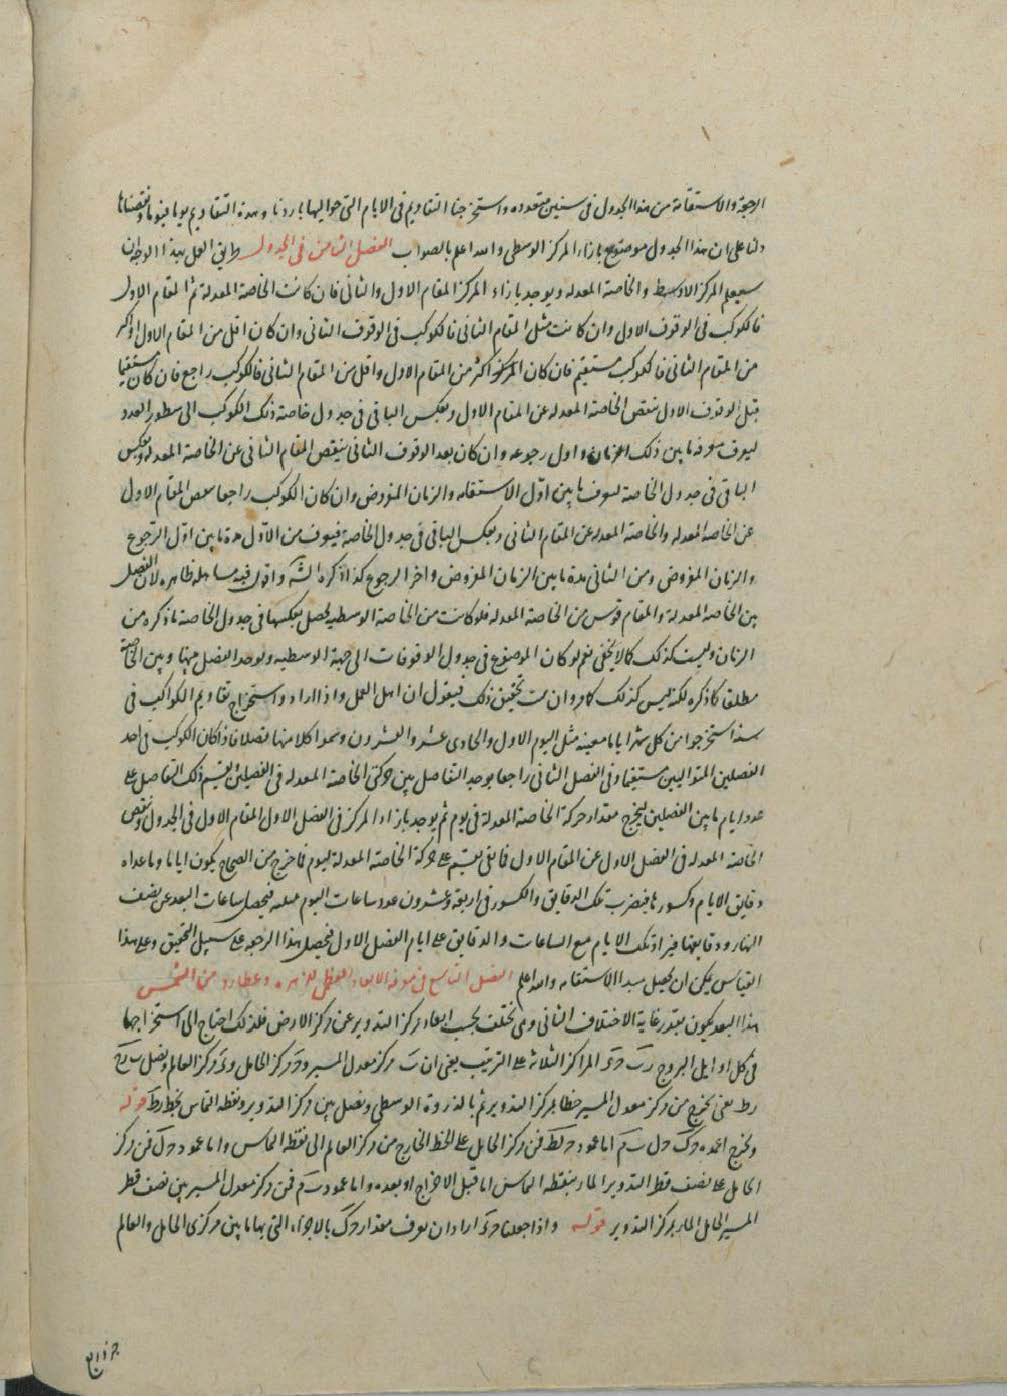 الرجعة والاستقامة من هذا الجدول فى سنين متعدده واستخرجنا التقاويم فى الايام التى حواليها باردنا وهذه التقاويم يوما فيوما ونقصناها
دلنا على ان هذا الجدول موضوع بازاء المركز الوسطى والله اعلم بالصواب الفصل الثامن فى الجدول طريق العمل بهذا الوجه ان
سيعلم المركز الاوسط والخاصة المعدله ويوجد بازاء المركز المقام الاول والثانى فان كانت الخاصة المعدلة مثل المقام الاول
فالكوكب فى الوقوف الاول وان كانت مثل المقام الثانى فالكوكب فى الوقوف الثانى وان كان اقل من المقام الاول او اكثر
من المقام الثانى فالكوكب مستقيم فان كان المركز اكثر من المقام الاول واقل من المقام الثانى فالكوكب راجع فان كان مستقيما
قبل الوقوف الاول ننقص الخاصة المعدله عن المقام الاول ويعكس الباقى فى جدول خاصة ذلك الكوكب الى سطور العدد
ليعرف منه ما بين ذلك الزمان واول رجوعه وان كان بعد الوقوف الثانى ينقص المقام الثانى عن الخاصة المعدله ويعكس
الباقى فى جدول الخاصة ليعرف ما بين اول الاستقامه والزمان المفروض وان كان الكوكب راجعا ينقص المقام الاول
عن الخاصه المعدله والخاصة المعدله عن المقام الثانى ويعكس الباقى فى جدول الخاصة فيعرف من الاول مدة ما بين اول الرجوع
والزمان المفروض ومن الثانى مدة ما بين الزمان المفروض واخر الرجوع كذا ذكره الش واقول فيه مساهله ظاهره لان الفضل
بين الخاصه المعدلة والمقام قوس من الخاصه المعدله فلو كانت من الخاصة الوسطيه لحصل بعكسها فى جدول الخاصة ما ذكره من
الزمان وليست كذلك كما لا يخفى نعم لو كان الموضوع فى جدول الوقوفات الخاصة الوسطيه ويوجد الفضل بينها وبين الخاصة
مطلقا كما ذكره لكنه ليس كذلك كما مر وان شئت تحقيق ذلك فنقول ان اهل العمل واذا ارادوا استخراج تقاويم الكواكب فى
سنة استخرجوا من كل شهر اياما معينه مثل اليوم الاول والحادى عشر والعشرون وسموا كلا منها فصلا فاذا كان الكوكب فى احد
الفصلين المتواليين مستقيما وفى الفصل الثانى راجعا يوجد التفاضل بين حركتى الخاصة المعدله فى الفصلين يقسم ذلك التفاضل على
عدد ايام ما بين الفصلين ليخرج مقدار حركة الخاصة المعدلة فى يوم ثم يوجد بازاء المركز فى الفصل الاول المقام الاول فى الجدول وينقص
الخاصه المعدله فى الفصل الاول عن المقام الاول فما بقى يقسم على حركة الخاصه المعدلة ليوم فما خرج من الصحاح يكون اياما وما عداه
دقايق الايام وكسورها فيضرب تلك الدقايق والكسور فى اربعة وعشرون عدد ساعات اليوم بليله فيحصل ساعات البعد عن نصف
النهار ودقايقها فيزاد تلك الايام مع الساعات والدقايق على ايام الفصل الاول فيحصل مبدأ الرجعه على سبيل التحقيق وعلى هذا
القياس يمكن ان يحصل مبدا الاستقامه والله اعلم الفصل التاسع فى معرفة الابعاد العظمى للزهره وعطارد من الشمس
هذا البعد يكون بقدر غاية الاختلاف الثانى وهى تختلف بحسب ابعاد مركز التدوير عن مركز الارض فلذلك احتاج الى استخراجها
فى كل اوايل البروج المراكز الثلاثة على الترتيب يعنى ان مركز معدل المسير و مركز الحامل و مركز العالم ويصل
يعنى يخرج من مركز معدل المسير خطا لمركز التدوير ثم بالذروة الوسطى ويصل بين مركز التدوير ونقطه التماس بخط قوله
ويخرج اعمده اما عمود فمن مركز الحامل على الخط الخارج من مركز العالم الى نقطه التماس واما عمود فمن مركز
الحامل على نصف قطر التدوير المار بنقطه التماس اما قبل الاخراج او بعده واما عمود فمن مركز معدل المسير بين نصف قطر
المسير الحامل المار بمركز التدوير قوله واذا جعلنا اراد ان يعرف مقدار بالاجزاء التى بها ما بين مركزى الحامل والعالم